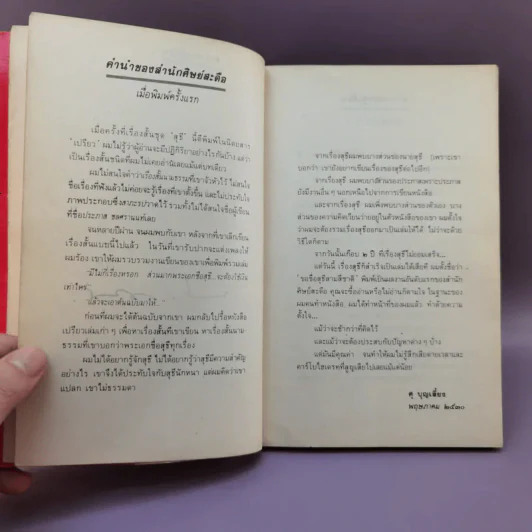 คำนำของสำนักศิษย์สะดือ
เมื่อพิมพ์ครั้งแรก
เมื่อครั้งที่เรื่องสั้นชุด "สุธี" นี้ตีพิมพ์ในนิตยสาร
"เปรียว" ผมไม่รู้ว่าผู้อ่านจะมีปฏิกิริยาอย่างไรกันบ้าง แต่ว่า
เป็นเรื่องสั้นชนิดที่ผมไม่เคยอ่านเลยแม้แต่บทเดียว
ผมไม่สนใจคำว่าเรื่องสั้นธรรมที่เขาจั่วหัวไว้ ไม่สนใจ
ชื่อเรื่องที่ฟังแล้วไม่ค่อยจะรู้เรื่องที่เขาตั้งขึ้น และไม่ประทับใจ
ภาพประกอบซึ่งเขาวาดไว้ รวมทั้งไม่ได้สนใจชื่อผู้เขียน
ที่ชื่อประภาส ชลศรานนท์เลย
จนหลายปีผ่าน จนผมพบกับเขา หลังจากที่เขาเลิกเขียน
เรื่องสั้นแบบนี้ไปแล้ว ในวันที่เขารับปากจะแต่งเพลงให้
ผมร้อง เขาให้ผมรวบรวมงานเขียนของเขาเพื่อพิมพ์รวมเล่ม
"มีไม่กี่เรื่องหรอก ส่วนมากพระเอกชื่อสุธี จะต้องใช้เงิน
เท่าไหร่
แล้วจะเอาต้นฉบับมาให้
ก่อนที่ผมจะได้ต้นฉบับจากเขา ผมกลับไปรื้อหนังสือ
เปรียวเล่มเก่า ๆ เพื่อหาเรื่องสั้นที่เขาเขียน หาเรื่องสั้นนาม-
ธรรมที่เขาบอกว่าพระเอกชื่อสุธีทุกเรื่อง
ผมไม่ได้อยากรู้จักสุธี ไม่ได้อยากรู้ว่าสุธีมีความสำคัญ
อย่างไร เขาจึงได้ประทับใจกับสุธีนักหนา แต่ผมคิดว่าเขา
แปลก เขาไม่ธรรมดา
จากเรื่องสุธีผมพบบางส่วนของนายสุธี (เพราะเขา
บอกว่า เรายังอยากเขียนเรื่องของสุธีต่อไปอีก)
จากเรื่องสุธี ผมพบบางส่วนของประภาสเพราะประภาส
ยังมีงานอื่น ๆ นอกเหนือไปจากการเขียนหนังสือ
และจากเรื่องสุธี ผมพบบางส่วนของตัวผมเอง บาง
ส่วนของความคิดเวียนว่ายอยู่ในตัวหนังสือของเขา ผมตั้งใจ
ว่าผมจะต้องรวมเรื่องสุธีออกมาเป็นเล่มให้ได้ ไม่ว่าจะด้วย
วิธีใดก็ตาม
จากวันนั้นเกือบ ๒ ปี ที่เรื่องสุธีไม่ยอมเสร็จ...
แต่วันนี้ เรื่องสุธีก็สำเร็จเป็นเล่มได้เสียที ผมตั้งชื่อว่า
"ขอชื่อสุธีสามสี่ชาติ" พิมพ์เป็นผลงานอันดับแรกของสำนัก
ศิษย์สะดือ คุณจะซื้ออ่านหรือไม่อ่านก็ตามใจ ในฐานะของ
ผมคนทำหนังสือ ผมได้ทำหน้าที่ของผมแล้ว ทำด้วยความ
ตั้งใจ...
แม้ว่าจะช้ากว่าที่คิดไว้
และแม้ว่าจะต้องประสบกับปัญหาต่าง ๆ บ้าง
แต่มันมีคุณค่า จนทำให้ผมไม่รู้สึกเสียดายเวลาและ
คาร์โบไฮเดรทที่สูญเสียไปเลยแม้แต่น้อย
ศุ บุญเลี้ยง
พฤษภาคม ๒๕๓๐